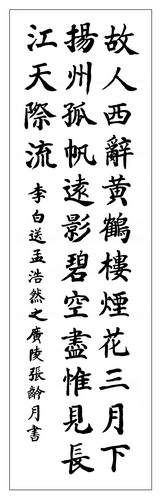 故人西辭黃鶴樓煙花三月下
揚州孤帆遠影碧空盡惟見長
江天際流
李白送孟浩然之廣陵張齡月書